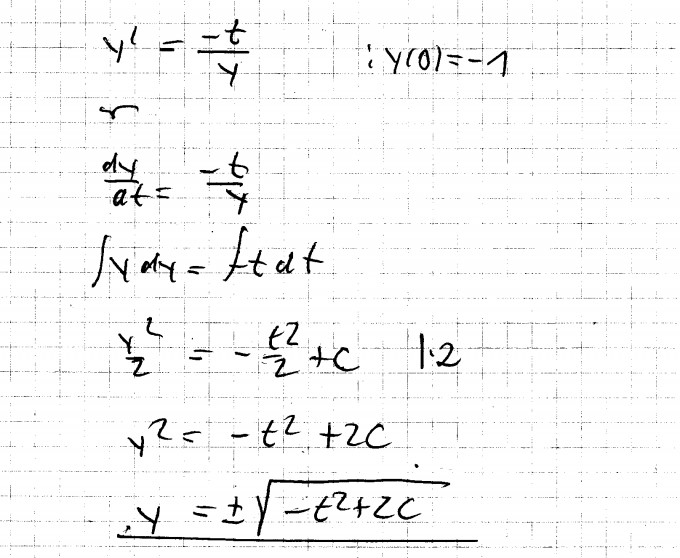 y' = -t/y ; y(0) = -1
dy/dt = -t/y
∫y dy = ∫-t dt
y²/2 = -t²/2 + c |·2
y² = -t² + 2C
y = ±√(-t² + 2C)